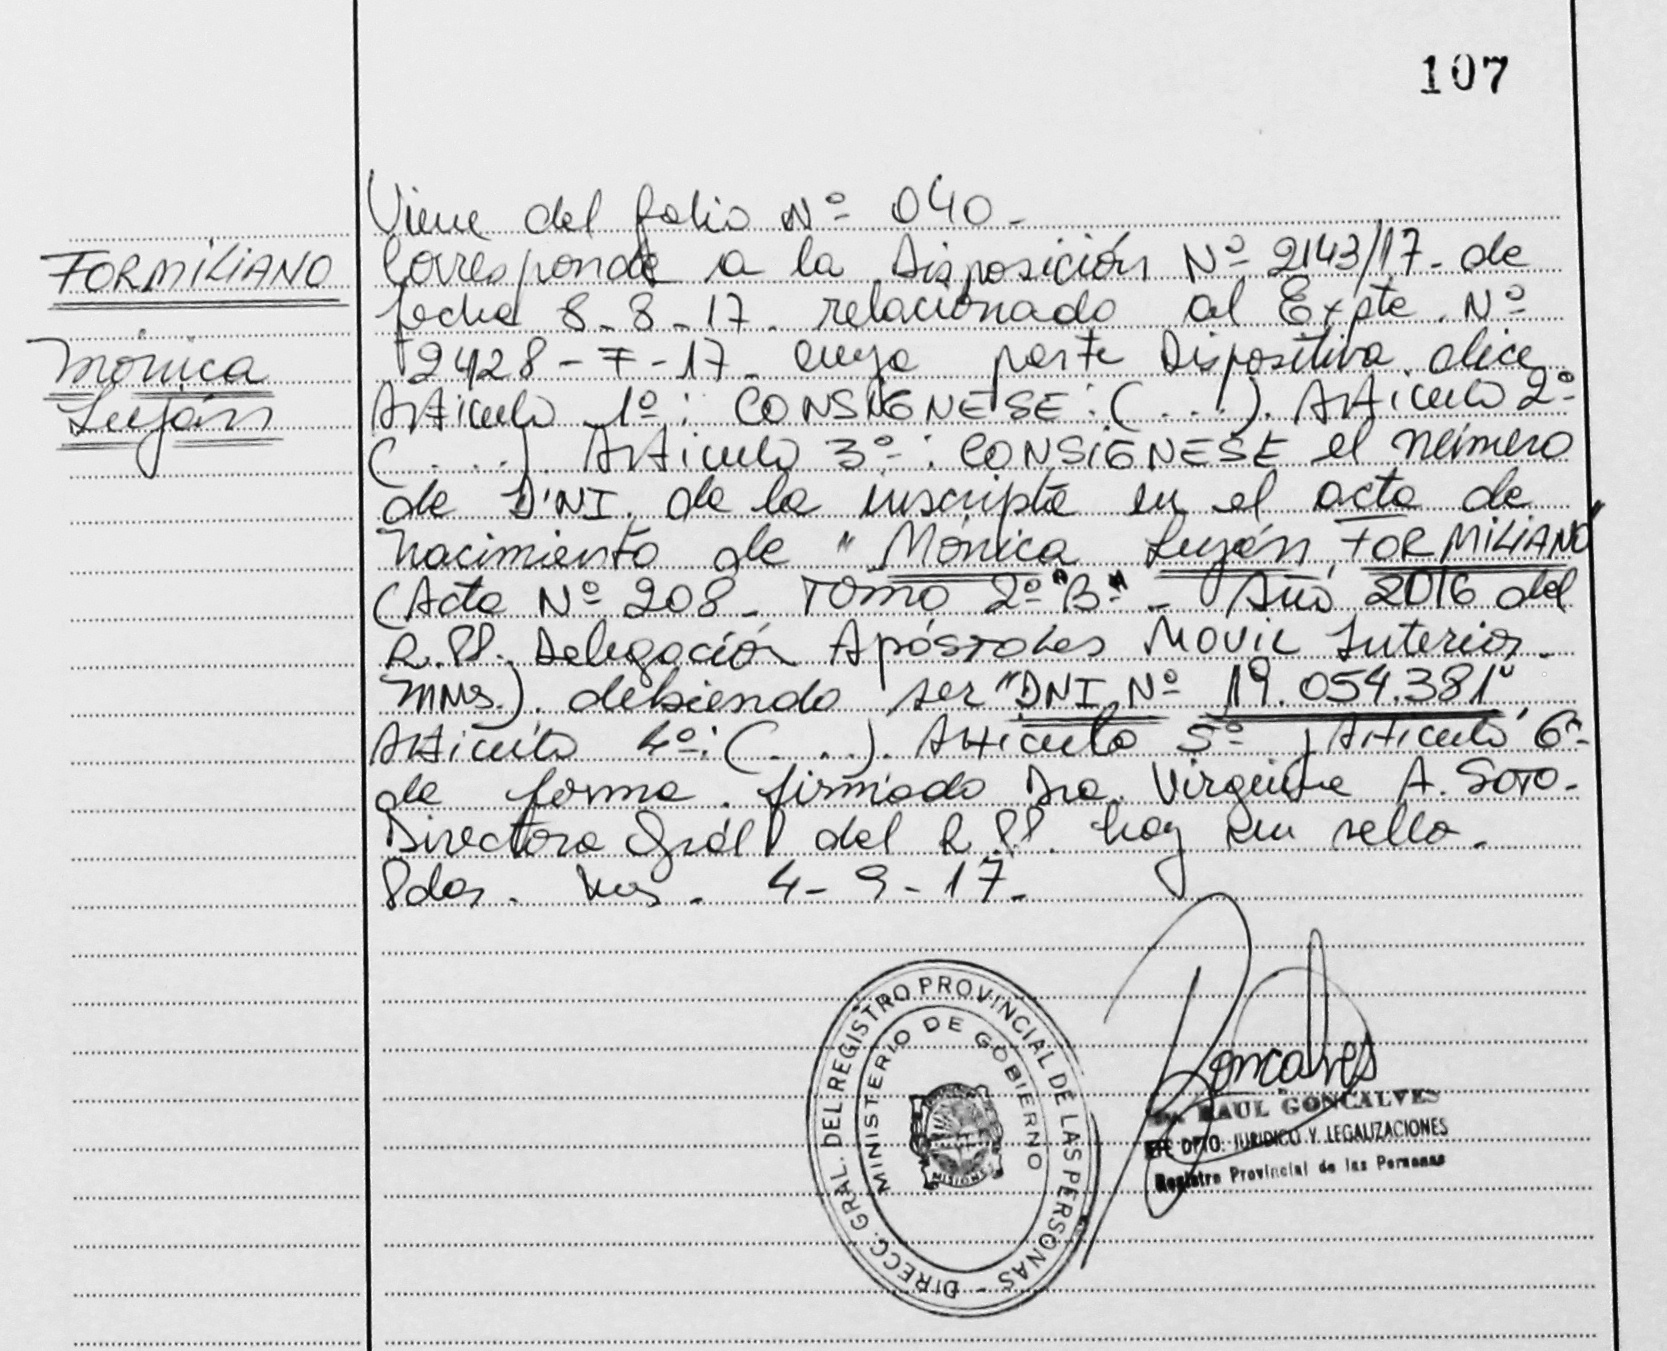 107
Viene del folio Nº 040.
FORMILIANO
Mónica
Luján
Corresponde a la Disposición Nº 2143/17. de
fecha 8-8-17. relacionado al Expte. Nº
2428-F-17. cuya parte Dispositiva dice
Artículo 1º: CONSIGNESE: (...). Artículo 2º
(...). Artículo 3º: CONSIGNESE el número
de DNI. de la inscripta en el acta de
nacimiento de "Mónica Luján FORMILIANO"
(Acta Nº 208. TOMO 2º "B". Año 2016 del
R.PP. Delegación Apóstoles MOVIL Interior.
MNS.). debiendo ser "DNI. Nº 19.054.381".
Artículo 4º: (...). Artículo 5º y Artículo 6º
de forma. firmado Dra. Virginia A. SOTO.
Directora Gral del R.PP. hay un sello.
Pdas. Mns. 4-9-17.
DIRECC. GRAL. DEL REGISTRO PROVINCIAL DE LAS PERSONAS -
MINISTERIO DE GOBIERNO
MISIONES
Goncalves
RAUL GONCALVES
JEFE DPTO. JURIDICO Y LEGALIZACIONES
Registro Provincial de las Personas